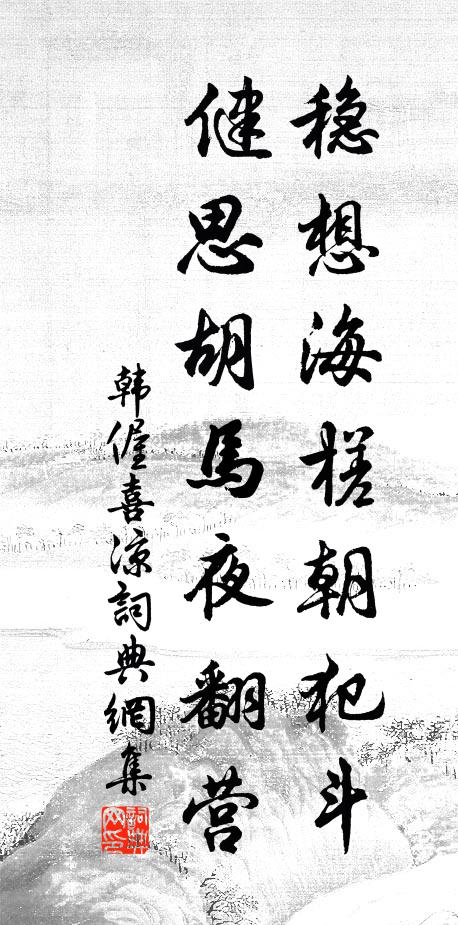 稳想海槎朝犯斗
健思胡馬夜翻营
韩偓喜凉詞典網集